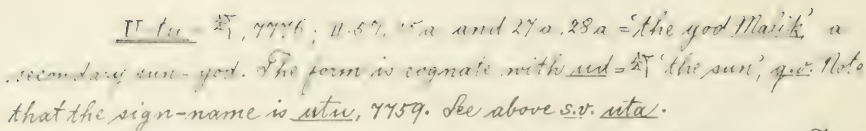 U tu = 𒌓, 7776; II. 57, 15a and 27a, 28a = 'the god Malik,' a
secondary sun-god. The form is cognate with ud = 𒌓 'the sun', q.v. Note
that the sign-name is utu, 7759. See above s.v. uta.